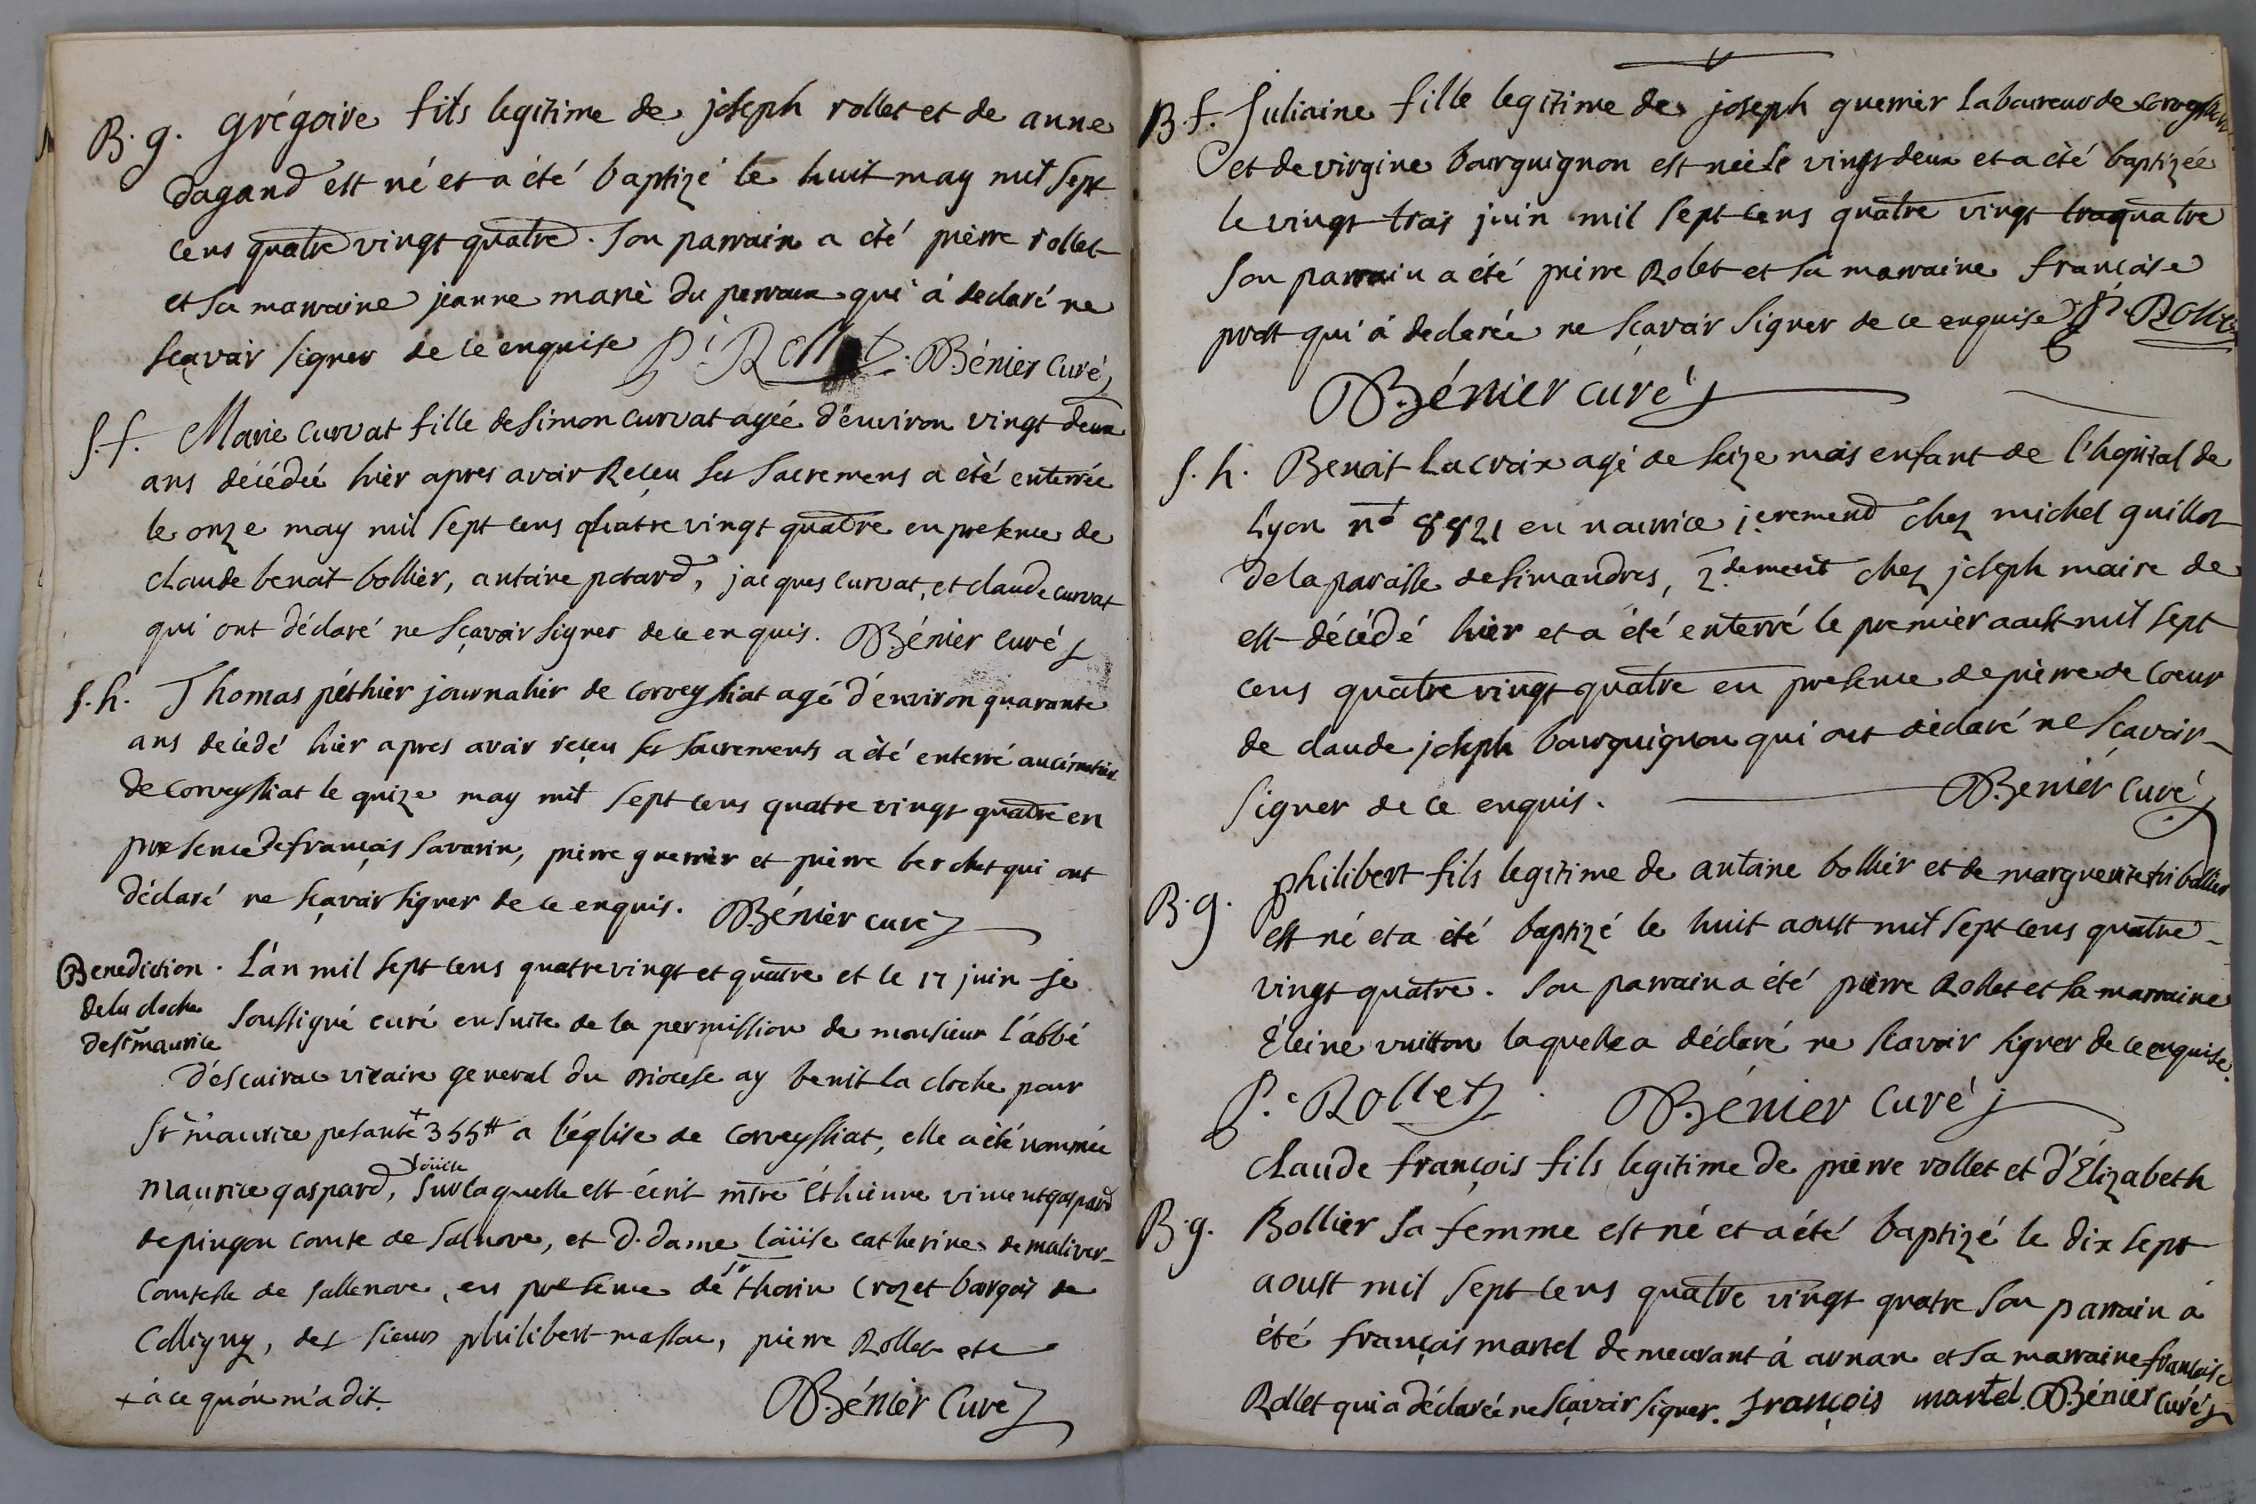 B. g. grégoire fils legitime de joseph rollet et de anne
dagand est né et a été baptizé le huit may mil sept
cens quatre vingt quatre. son parrain a été pierre rollet
et sa marraine jeanne marie du perroux qui à declaré ne
sçavoir signer de ce enquise P.e Rollet. Bénier Curé
S. f. Marie Curvat fille de Simon Curvat agée d'environ vingt deux
ans décédée hier apres avoir Reçeu ses Sacremens a été enterrée
le onze may mil sept cens quatre vingt quatre en presence de
Claude benoit bollier, antoine potard, jacques Curvat, et claude curvat
qui ont déclaré ne sçavoir signer de ce enquis. Bénier Curé
S. h. Thomas péthier journalier de Corveyssiat agé d'environ quarante
ans decedé hier apres avoir reçeu ses sacrements a été enterré au cimetiere
de Corveyssiat le quize may mil sept cens quatre vingt quatre en
presence de françois Savarin, pierre guerrier et pierre berchet qui ont
déclaré ne sçavoir signer de ce enquis. Bénier curé
Benediction
de la cloche
de st maurice
L'an mil sept cens quatre vingt et quatre et le 17 juin je
soussigné curé ensuite de la permission de monsieur l'abbé
d'escairac vicaire general du Diocese ay benit la cloche pour
St maurice pesante + 355 tt a l'église de Corveyssiat, elle a été nommée
maurice gaspard, loüise sur laquelle est écrit msre Éthienne vincent gaspard
de pingon Comte de Salnove, et d. dame loüise catherine de maliver
Comtesse de sallenove, en presence de sr thorin Crozet bourgois de
Colligny, des sieurs philibert massou, pierre Rollet etc
+ à ce qu'on m'a dit. Bénier Curé
B. f. Juliaine fille legitime de joseph guerrier laboureur de Corveyssiat
et de virgine bourguignon est née le vingt deux et a été baptizée
le vingt trois juin mil sept cens quatre vingt quatre
son parrain a été pierre Rolet et sa marraine françoise
prost qui à declarée ne sçavoir signer de ce enquise P.e Rollet
Bénier curé
S. h. Benoit Lacroix agé de seize mois enfant de l'hopital de
Lyon no 8821 en nourrice jerement chez michel guillot
de la paroisse de simandres, 2.dement chez joseph maire de
est décédé hier et a été enterré le premier aoust mil sept
cens quatre vingt quatre en presence de pierre de Coeur
de claude joseph bourguignon qui ont déclaré ne sçavoir
signer de ce enquis. Benier Curé
B. g. philibert fils legitime de antoine bollier et de marguerite tribollier
est né et a été baptizé le huit aoust mil sept cens quatre
vingt quatre. son parrain a été pierre Rollet et sa marraine
Éleine vuitton laquelle a déclaré ne scavoir signer de ce enquise.
P.e Rollet. Bénier Curé
Claude françois fils legitime de pierre rollet et d'Élizabeth
B. g. Bollier sa femme est né et a été baptizé le dix sept
aoust mil sept cens quatre vingt quatre son parrain à
été françois martel demeurant à arnan et sa marraine françoise
Rollet qui a déclarée ne sçavoir signer. françois martel. Bénier Curé